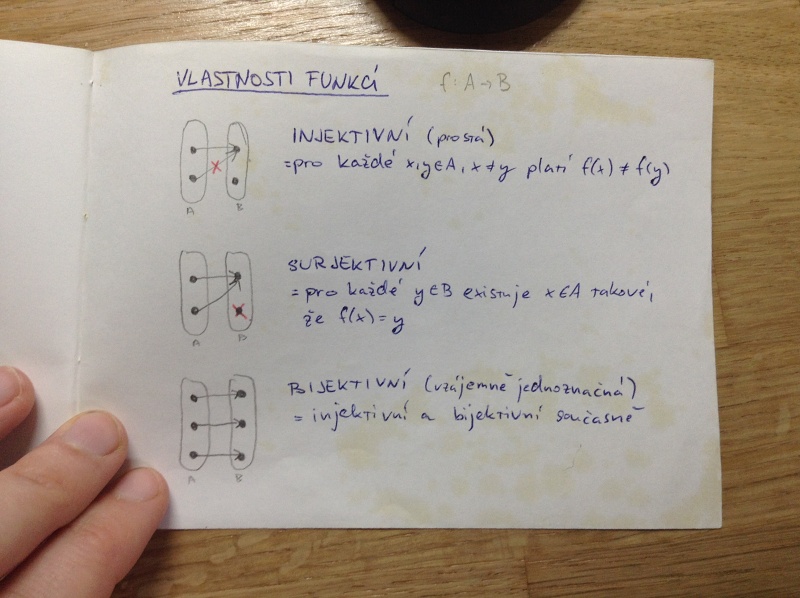 VLASTNOSTI FUNKCÍ f: A → B
INJEKTIVNÍ (prostá)
= pro každé x,y∈A, x ≠ y platí f(x) ≠ f(y)
A B
SURJEKTIVNÍ
= pro každé y∈B existuje x∈A takové,
že f(x) = y
A B
BIJEKTIVNÍ (vzájemně jednoznačná)
= injektivní a bijektivní současně
A B